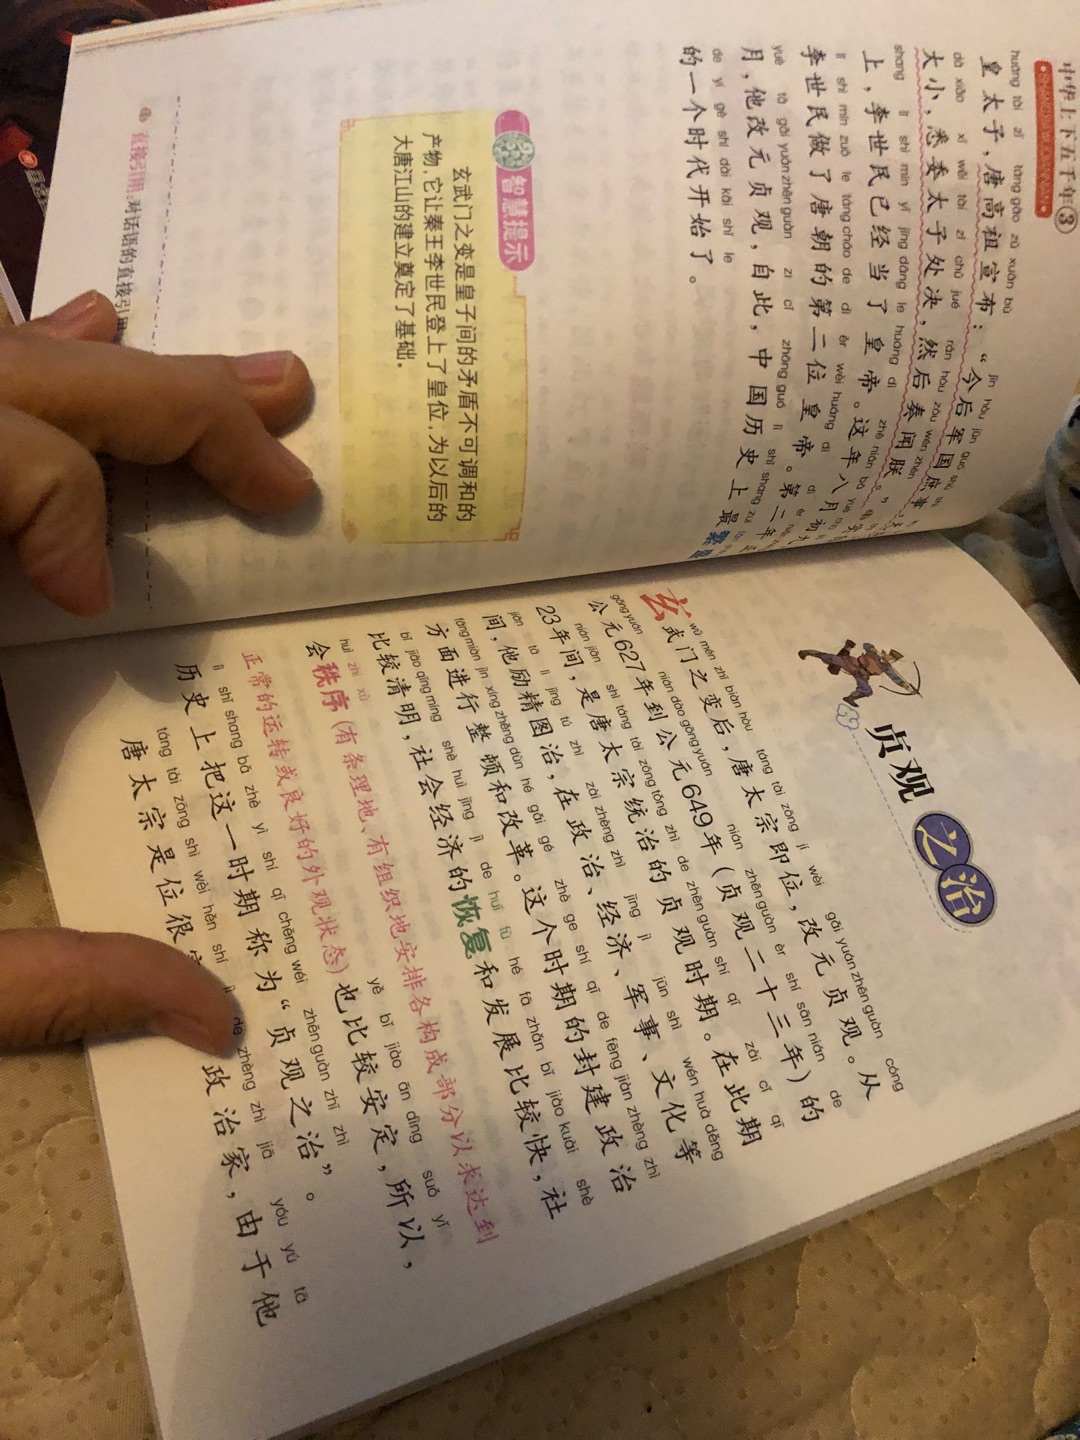 中华上下五千年③
SHANGXIAWUQIANNIAN
huáng tài zǐ táng gāo zǔ xuān bù jīn hòu jūn guó
皇太子，唐高祖宣布：“今后军国庶事
dà xiǎo xī wěi tài zǐ chǔ jué rán hòu zòu wén zhèn
大小，悉委太子处决，然后奏闻朕。”
shang lǐ shì mín yǐ jīng dāng le huáng dì zhè nián bā yuè
上，李世民已经当了皇帝。这年八月初
lǐ shì mín zuò le táng cháo de dì èr wèi huáng dì dì èr
李世民做了唐朝的第二位皇帝。第二年
yuè tā gǎi yuán zhēn guàn zì cǐ zhōng guó lì shǐ shang zuì
月，他改元贞观，自此，中国历史上最
de yí gè shí dài kāi shǐ le
的一个时代开始了。
智慧提示
玄武门之变是皇子间的矛盾不可调和的
产物，它让秦王李世民登上了皇位，为以后的
大唐江山的建立奠定了基础。
直接引用：对话语的直接引用
贞观之治
wǔ mén zhī biàn hòu táng tài zōng jí wèi gǎi yuán zhēn guàn cóng
玄武门之变后，唐太宗即位，改元贞观。从
gōng yuán nián dào gōng yuán nián zhēn guàn èr shí sān nián de
公元627年到公元649年（贞观二十三年）的
nián jiān shì táng tài zōng tǒng zhì de zhēn guàn shí qī zài cǐ qī
23年间，是唐太宗统治的贞观时期。在此期
jiān tā lì jīng tú zhì zài zhèng zhì jīng jì jūn shì wén huà děng
间，他励精图治，在政治、经济、军事、文化等
fāng miàn jìn xíng zhěng dùn hé gǎi gé zhè ge shí qī de fēng jiàn zhèng zhì
方面进行整顿和改革。这个时期的封建政治
bǐ jiào qīng míng shè huì jīng jì de huī fù hé fā zhǎn bǐ jiào kuài shè
比较清明，社会经济的恢复和发展比较快，社
huì zhì xù yě bǐ jiào ān dìng suǒ yǐ
会秩序（有条理地、有组织地安排各构成部分以求达到
正常的运转或良好的外观状态）也比较安定，所以，
lì shǐ shang bǎ zhè yì shí qī chēng wéi zhēn guàn zhī zhì
历史上把这一时期称为“贞观之治”。
táng tài zōng shì wèi hěn shí de zhèng zhì jiā yóu yú tā
唐太宗是位很 政治家，由于他